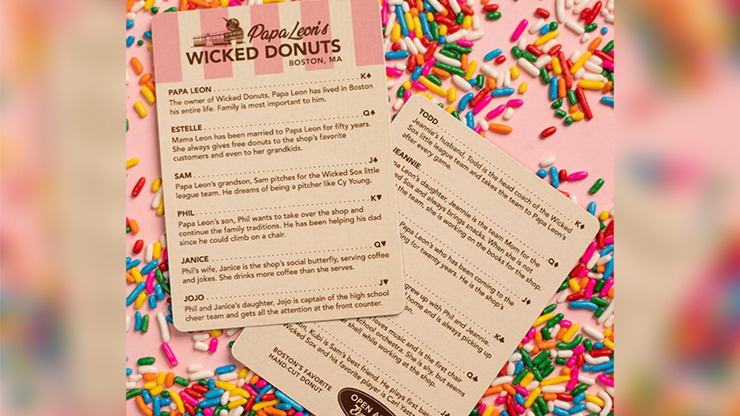 Papa Leon's
WICKED DONUTS
BOSTON, MA
PAPA LEON K♠
The owner of Wicked Donuts, Papa Leon has lived in Boston
his entire life. Family is most important to him.
ESTELLE Q♠
Mama Leon has been married to Papa Leon for fifty years.
She always gives free donuts to the shop's favorite
customers and even to her grandkids.
SAM J♠
Papa Leon's grandson, Sam pitches for the Wicked Sox little
league team. He dreams of being a pitcher like Cy Young.
PHIL K♥
Papa Leon's son, Phil wants to take over the shop and
continue the family traditions. He has been helping his dad
since he could climb on a chair.
JANICE Q♥
Phil's wife, Janice is the shop's social butterfly, serving coffee
and jokes. She drinks more coffee than she serves.
JOJO J♥
Phil and Janice's daughter, Jojo is captain of the high school
cheer team and gets all the attention at the front counter.
TODD K♦
Jeannie's husband, Todd is the head coach of the Wicked
Sox little league team and takes the team to Papa Leon's
after every game.
JEANNIE Q♦
Papa Leon's daughter, Jeannie is the team Mom for the
Sox and always brings snacks. When she is not
the team, she is working on the books for the shop.
J♦
Papa Leon's who has been coming to the
for twenty years. He is the shop's
K♣
grew up with Phil and Jeannie.
home and is always picking up
Q♣
loves music and is the first chair
school orchestra. She is shy, but seems
while working at the shop.
J♣
Kubi is Sam's best friend. He plays first
Wicked Sox and his favorite player is Carl
BOSTON'S FAVORITE
HAND-CUT DONUT
OPEN